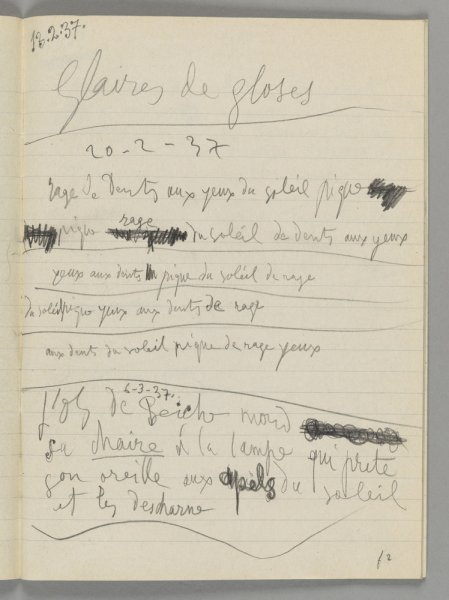 13.2.37.
Glaires de gloses
20-2-37
rage de dents aux yeux du soleil pique
pique rage du soleil de dents aux yeux
yeux aux dents pique du soleil de rage
du soleil pique yeux aux dents de rage
aux dents du soleil pique de rage yeux
6-3-37.
de mord
sa chaire à la lampe qui prete
son oreille aux apels du soleil
et les descharne